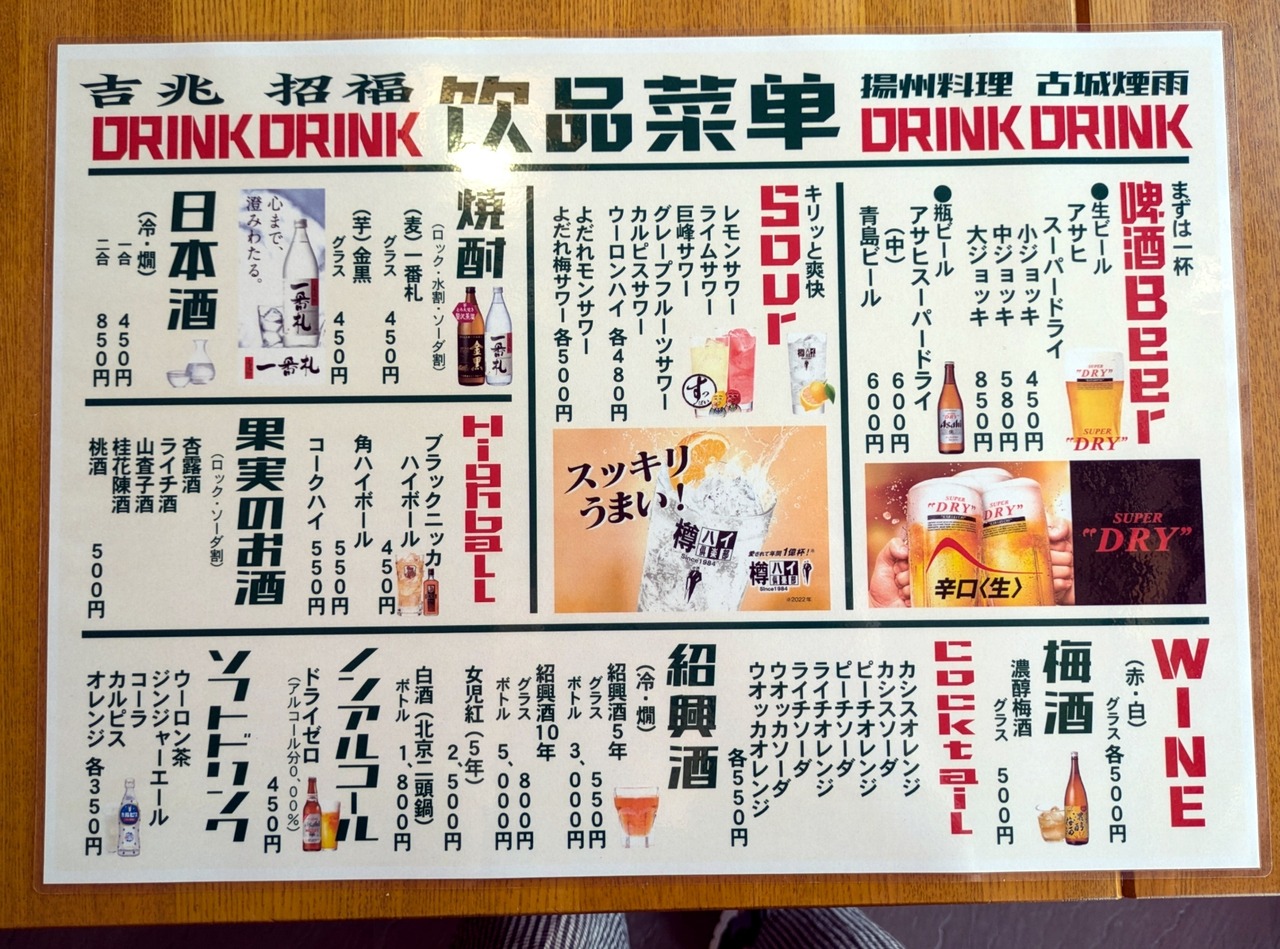 吉兆 招福
DRINK DRINK
饮品菜单
揚州料理 古城煙雨
DRINK DRINK
まずは一杯
啤酒Beer
●生ビール
アサヒ
スーパードライ
小ジョッキ 450円
中ジョッキ 580円
大ジョッキ 850円
●瓶ビール
アサヒスーパードライ
(中) 600円
青島ビール 600円
SUPER
"DRY"
SUPER
"DRY"
Asahi
SUPER
"DRY"
SUPER
"DRY"
辛口〈生〉
SUPER
"DRY"
キリッと爽快
Sour
レモンサワー
ライムサワー
巨峰サワー
グレープフルーツサワー
カルピスサワー
ウーロンハイ 各480円
よだれモンサワー
よだれ梅サワー 各500円
樽ハイ
スッキリ
うまい!
樽ハイ
倶楽部
Since1984
愛されて年間1億杯!※
樽ハイ
倶楽部
Since1984
※2022年
焼酎
(ロック・水割・ソーダ割)
(麦)一番札
グラス 450円
(芋)金黒
グラス 450円
金黒
一番札
心まで、
澄みわたる。
一番札
一番札
日本酒
(冷・燗)
一合 450円
二合 850円
HighbaLL
ブラックニッカ
ハイボール 450円
角ハイボール 550円
コークハイ 550円
果実のお酒
(ロック・ソーダ割)
杏露酒
ライチ酒
山査子酒
桂花陳酒
桃酒 500円
WINE
(赤・白)
グラス 各500円
梅酒
濃醇梅酒
グラス 500円
CocktaiL
カシスオレンジ
カシスソーダ
ピーチオレンジ
ピーチソーダ
ライチオレンジ
ライチソーダ
ウオッカソーダ
ウオッカオレンジ
各550円
紹興酒
(冷・燗)
紹興酒5年
グラス 550円
ボトル 3,000円
紹興酒10年
グラス 800円
ボトル 5,000円
女児紅(5年)
2,500円
白酒(北京二頭鍋)
ボトル 1,800円
ノンアルコール
ドライゼロ
(アルコール分0.00%)
450円
ソフトドリンク
ウーロン茶
ジンジャーエール
コーラ
カルピス
オレンジ 各350円